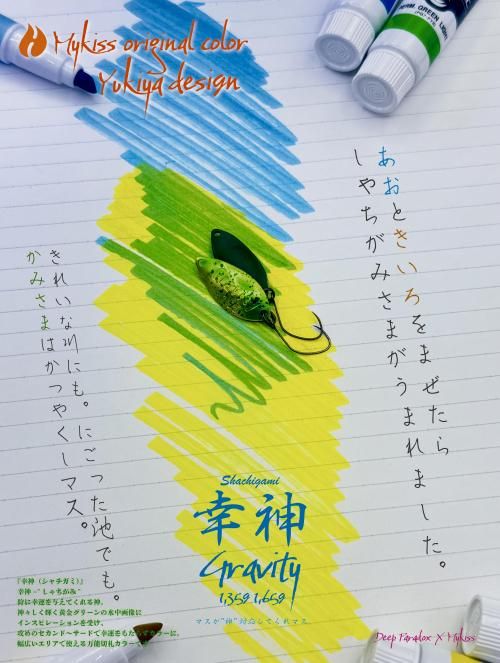 Mykiss original color
Yukiya design
PERM. GREEN LIGHT
あおときいろをまぜたら
しやちがみさまがうまれました。
きれいな川にも。にごった池でも。
かみさまはかつやくしマス。
Shachigami
幸神
Gravity
1,35g 1,65g
マスが"神"対応してくれマス
『幸神(シャチガミ)』
幸神="しゃちがみ"
狩に幸運を与えてくれる神。
神々しく輝く黄金グリーンの水中画像に
インスピレーションを受け、
攻めのセカンド〜サードで幸運をもたらすカラーに。
幅広いエリアで使える万能切札カラーです
Deep Paradox X Mykiss